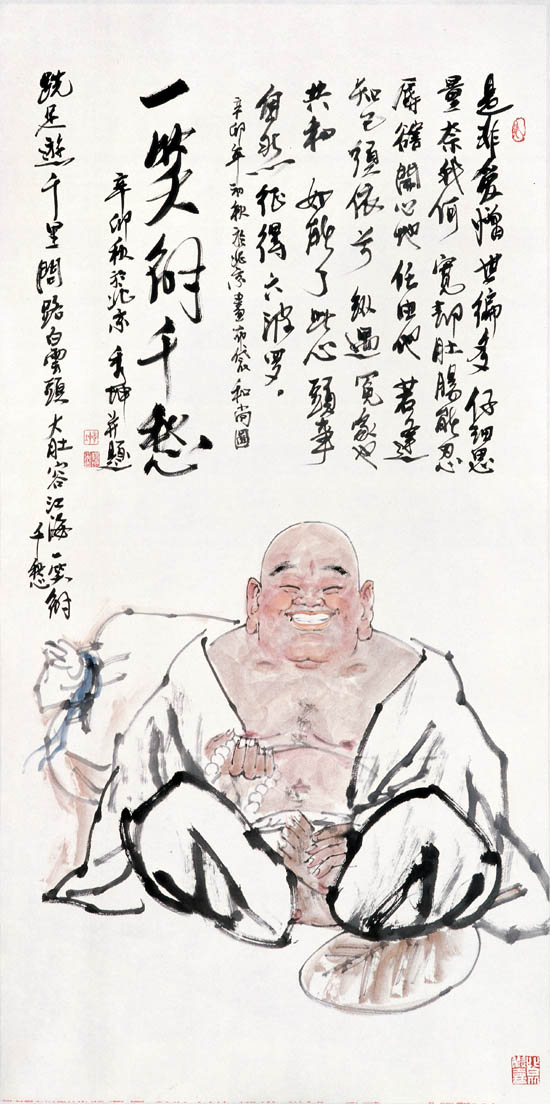 是非愛憎世偏多 仔细思
量奈我何 寬却肚腸能忍
辱 豁開心地任由他 若逢
知己須依分 縱遇冤家也
共和 如能了此心頭事
自然证得六波罗。
辛卯年初秋於北京畫布袋和尚圖
一笑解千愁
辛卯秋於北京 坤并题
跣足遊千里 問路白雲頭 大肚容江海 一笑解
千愁